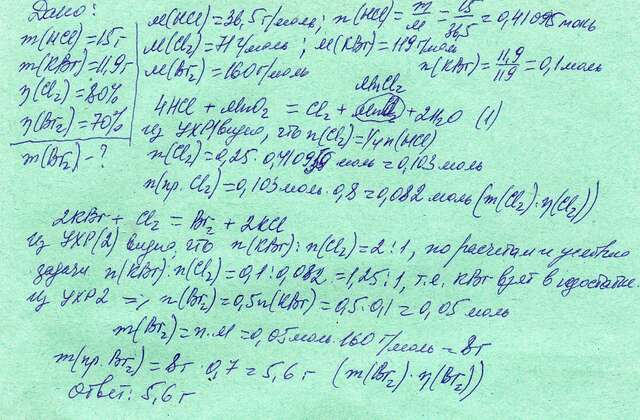 Дано:
m(HCl)=15г
m(KBr)=11,9г
η(Cl₂)=80%
η(Br₂)=70%
m(Br₂)-?
M(HCl)=36,5г/моль; n(HCl)=m/M=15/36,5=0,41095моль
M(Cl₂)=71г/моль; M(KBr)=119г/моль
M(Br₂)=160г/моль n(KBr)=11,9/119=0,1моль
MnCl₂
4HCl+MnO₂=Cl₂+ +2H₂O (1)
из УХР1 видно, что n(Cl₂)=1/4n(HCl)
n(Cl₂)=0,25·0,41095 моль=0,103моль
n(пр.Cl₂)=0,103моль·0,8=0,082моль(m(Cl₂)·η(Cl₂))
2KBr+Cl₂=Br₂+2KCl
из УХР(2) видно, что n(KBr):n(Cl₂)=2:1, по расчетам и условию
задачи n(KBr):n(Cl₂)=0,1:0,082=1,25:1, т.е. KBr взят в недостатке.
Из УХР2 => n(Br₂)=0,5n(KBr)=0,5·0,1=0,05моль
m(Br₂)=n·M=0,05моль·160г/моль=8г
m(пр.Br₂)=8г·0,7=5,6г (m(Br₂)·η(Br₂))
Ответ: 5,6г